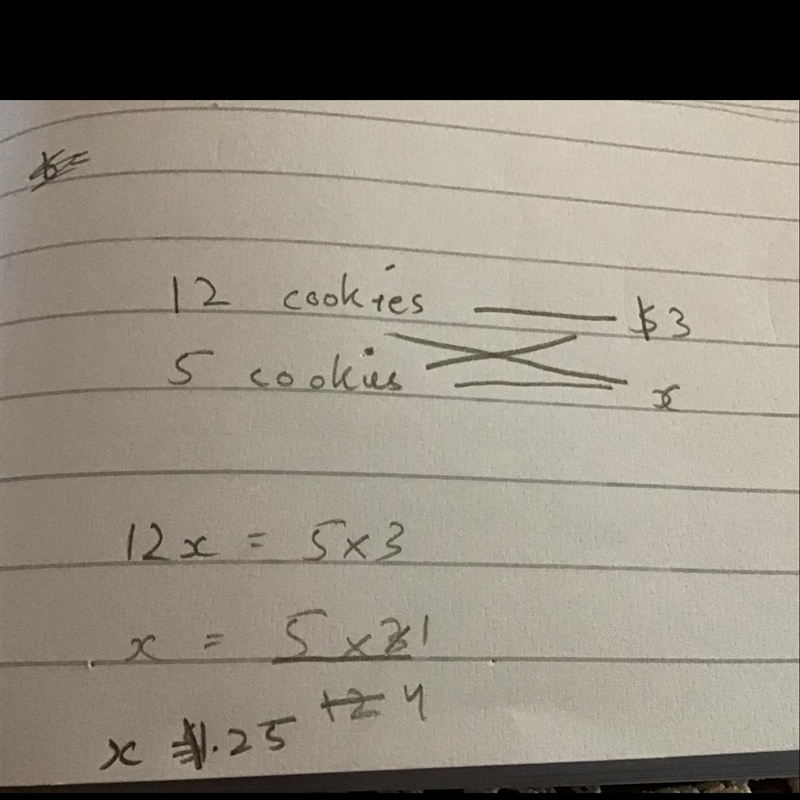 12 cookies — $3
5 cookies — x
12x = 5×3
x = 5×3 1
12 4
x = $1.25